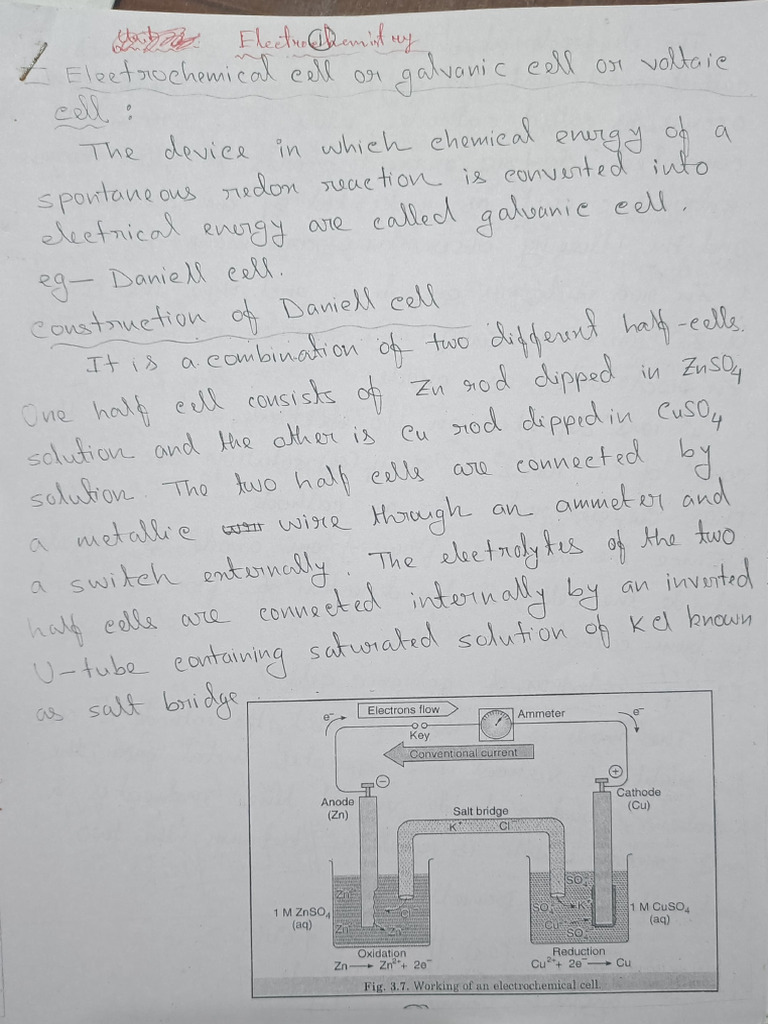 Electrochemistry
1
Electrochemical cell or galvanic cell or voltaic
cell :
The device in which chemical energy of a
spontaneous redox reaction is converted into
electrical energy are called galvanic cell.
eg— Daniell cell.
Construction of Daniell cell
It is a combination of two different half-cells.
One half cell consists of Zn rod dipped in ZnSO4
solution and the other is Cu rod dipped in CuSO4
solution. The two half cells are connected by
a metallic wire through an ammeter and
a switch externally. The electrolytes of the two
half cells are connected internally by an inverted
U-tube containing saturated solution of KCl known
as salt bridge
e⁻ Electrons flow Ammeter e⁻
Key
Conventional current
Anode
(Zn)
Salt bridge
K⁺ Cl⁻
Cathode
(Cu)
1 M ZnSO₄
(aq)
Zn²⁺
Cl⁻
Zn²⁺
Zn²⁺
SO₄
SO₄
K⁺
Cu²⁺
SO₄
1 M CuSO₄
(aq)
Oxidation
Zn → Zn²⁺ + 2e⁻
Reduction
Cu²⁺ + 2e⁻ → Cu
Fig. 3.7. Working of an electrochemical cell.